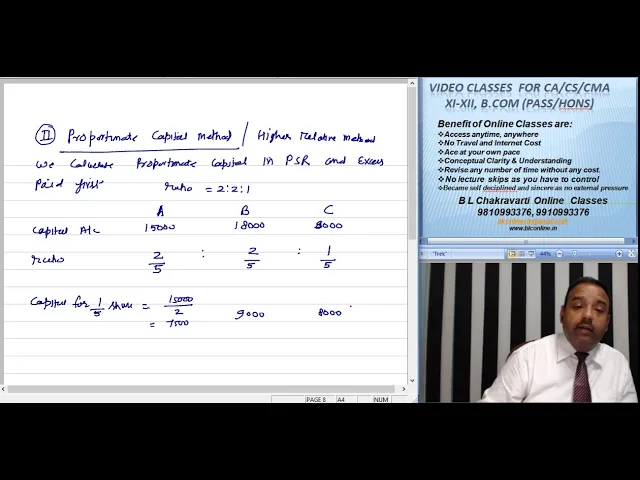 II Proportionate Capital Method / Higher Relative method
we Calculate Proportionate Capital in PSR and Excess
Paid first ratio = 2:2:1
A B C
Capital A/c 15000 18000 8000
ratio 2/5 : 2/5 : 1/5
Capital for 1/5 share = 15000/2 9000 8000
= 7500
PAGE 8 A4 NUM
VIDEO CLASSES FOR CA/CS/CMA
XI-XII, B.COM (PASS/HONS)
Benefit of Online Classes are:
❖Access anytime, anywhere
❖No Travel and Internet Cost
❖Ace at your own pace
❖Conceptual Clarity & Understanding
❖Revise any number of time without any cost.
❖No lecture skips as you have to control
❖Became self deciplined and sincere as no external pressure
B L Chakravarti Online Classes
9810993376, 9910993376
www.blconline.in
"Trek" 44%